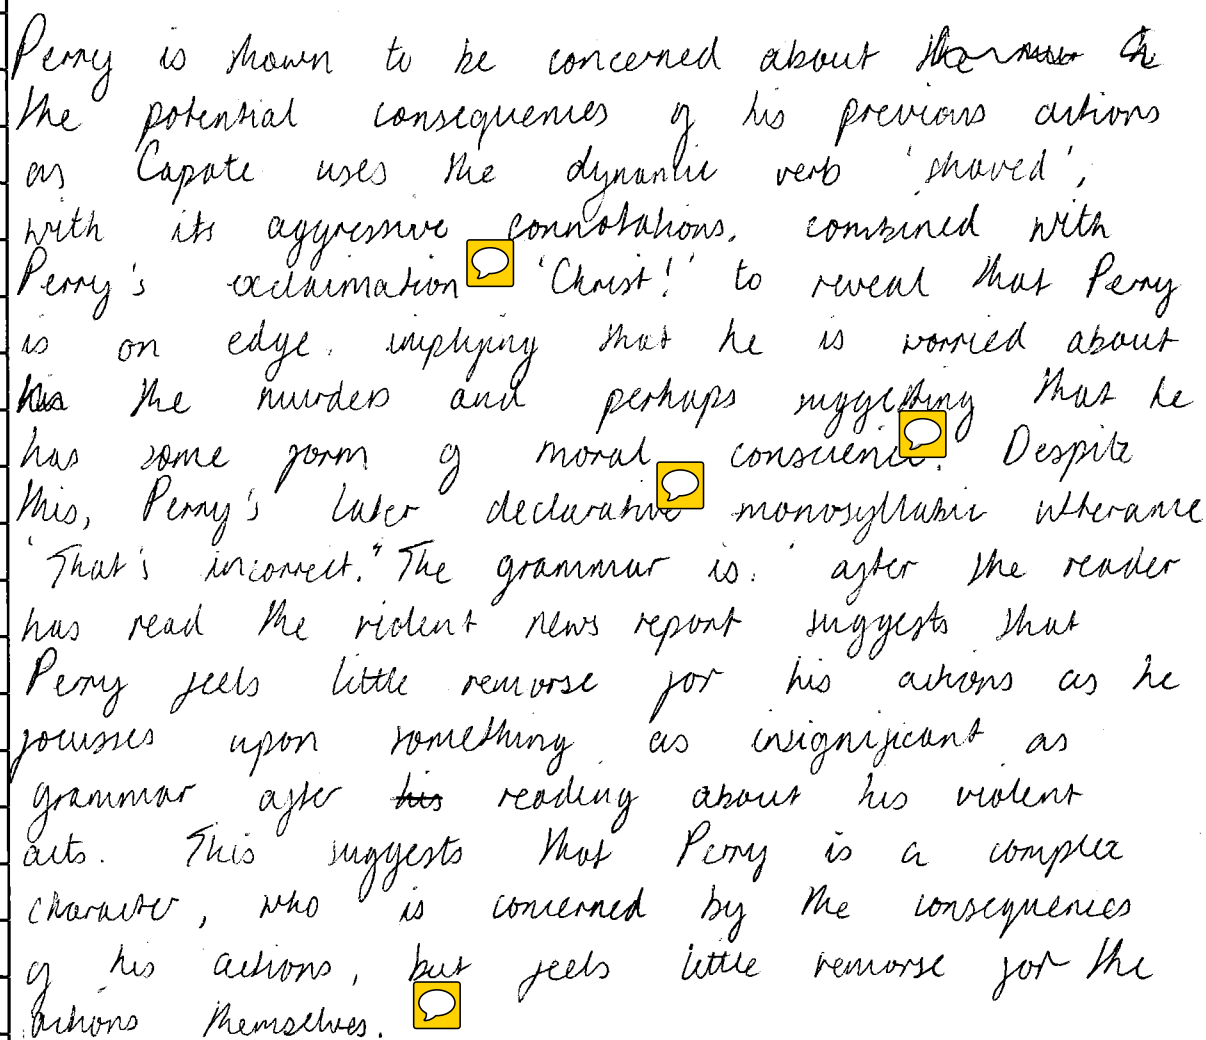 Perry is shown to be concerned about the
the potential consequences of his previous actions
as Capote uses the dynamic verb 'shoved',
with its aggressive connotations, combined with
Perry's exclaimation 'Christ!' to reveal that Perry
is on edge, implying that he is worried about
his the murders and perhaps suggesting that he
has some form of moral conscience. Despite
this, Perry's later declarative monosyllabic utterance
'That's incorrect." The grammar is.' after the reader
has read the violent news report suggests that
Perry feels little remorse for his actions as he
focusses upon something as insignificant as
grammar after his reading about his violent
acts. This suggests that Perry is a complex
character, who is concerned by the consequences
of his actions, but feels little remorse for the
actions themselves.